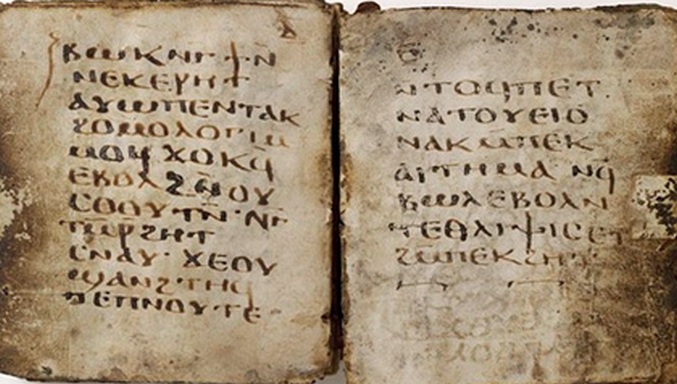 ⲃⲱⲕⲛⲅϯⲛ
ⲛⲉⲕⲉⲣⲏⲧ
ⲁⲩⲱⲡⲉⲛⲧⲁⲕ
ϩⲟⲙⲟⲗⲟⲅⲓⲁ
ⲙⲟϥϫⲟⲕϥ
ⲉⲃⲟⲗϩⲛⲟⲩ
ⲥⲟⲟⲩⲧⲛ·ⲛⲅ
ⲧⲙⲣϩⲏⲧ
ⲥⲛⲁⲩ·ϫⲉⲟⲩ
ϣⲁⲛϩⲧⲏϥ
ⲡⲉⲡⲛⲟⲩⲧⲉ
ⲉ
ⲛⲧⲟϥⲡⲉⲧ
ⲛⲁⲧⲟⲩⲉⲓⲟ
ⲛⲁⲕⲙⲡⲉⲕ
ⲁⲓⲧⲏⲙⲁⲛϥ
ⲃⲱⲗⲉⲃⲟⲗⲛ
ⲧⲉⲑⲗⲓⲯⲓⲥⲉⲧ
ϩⲙⲡⲉⲕϩⲏⲧ